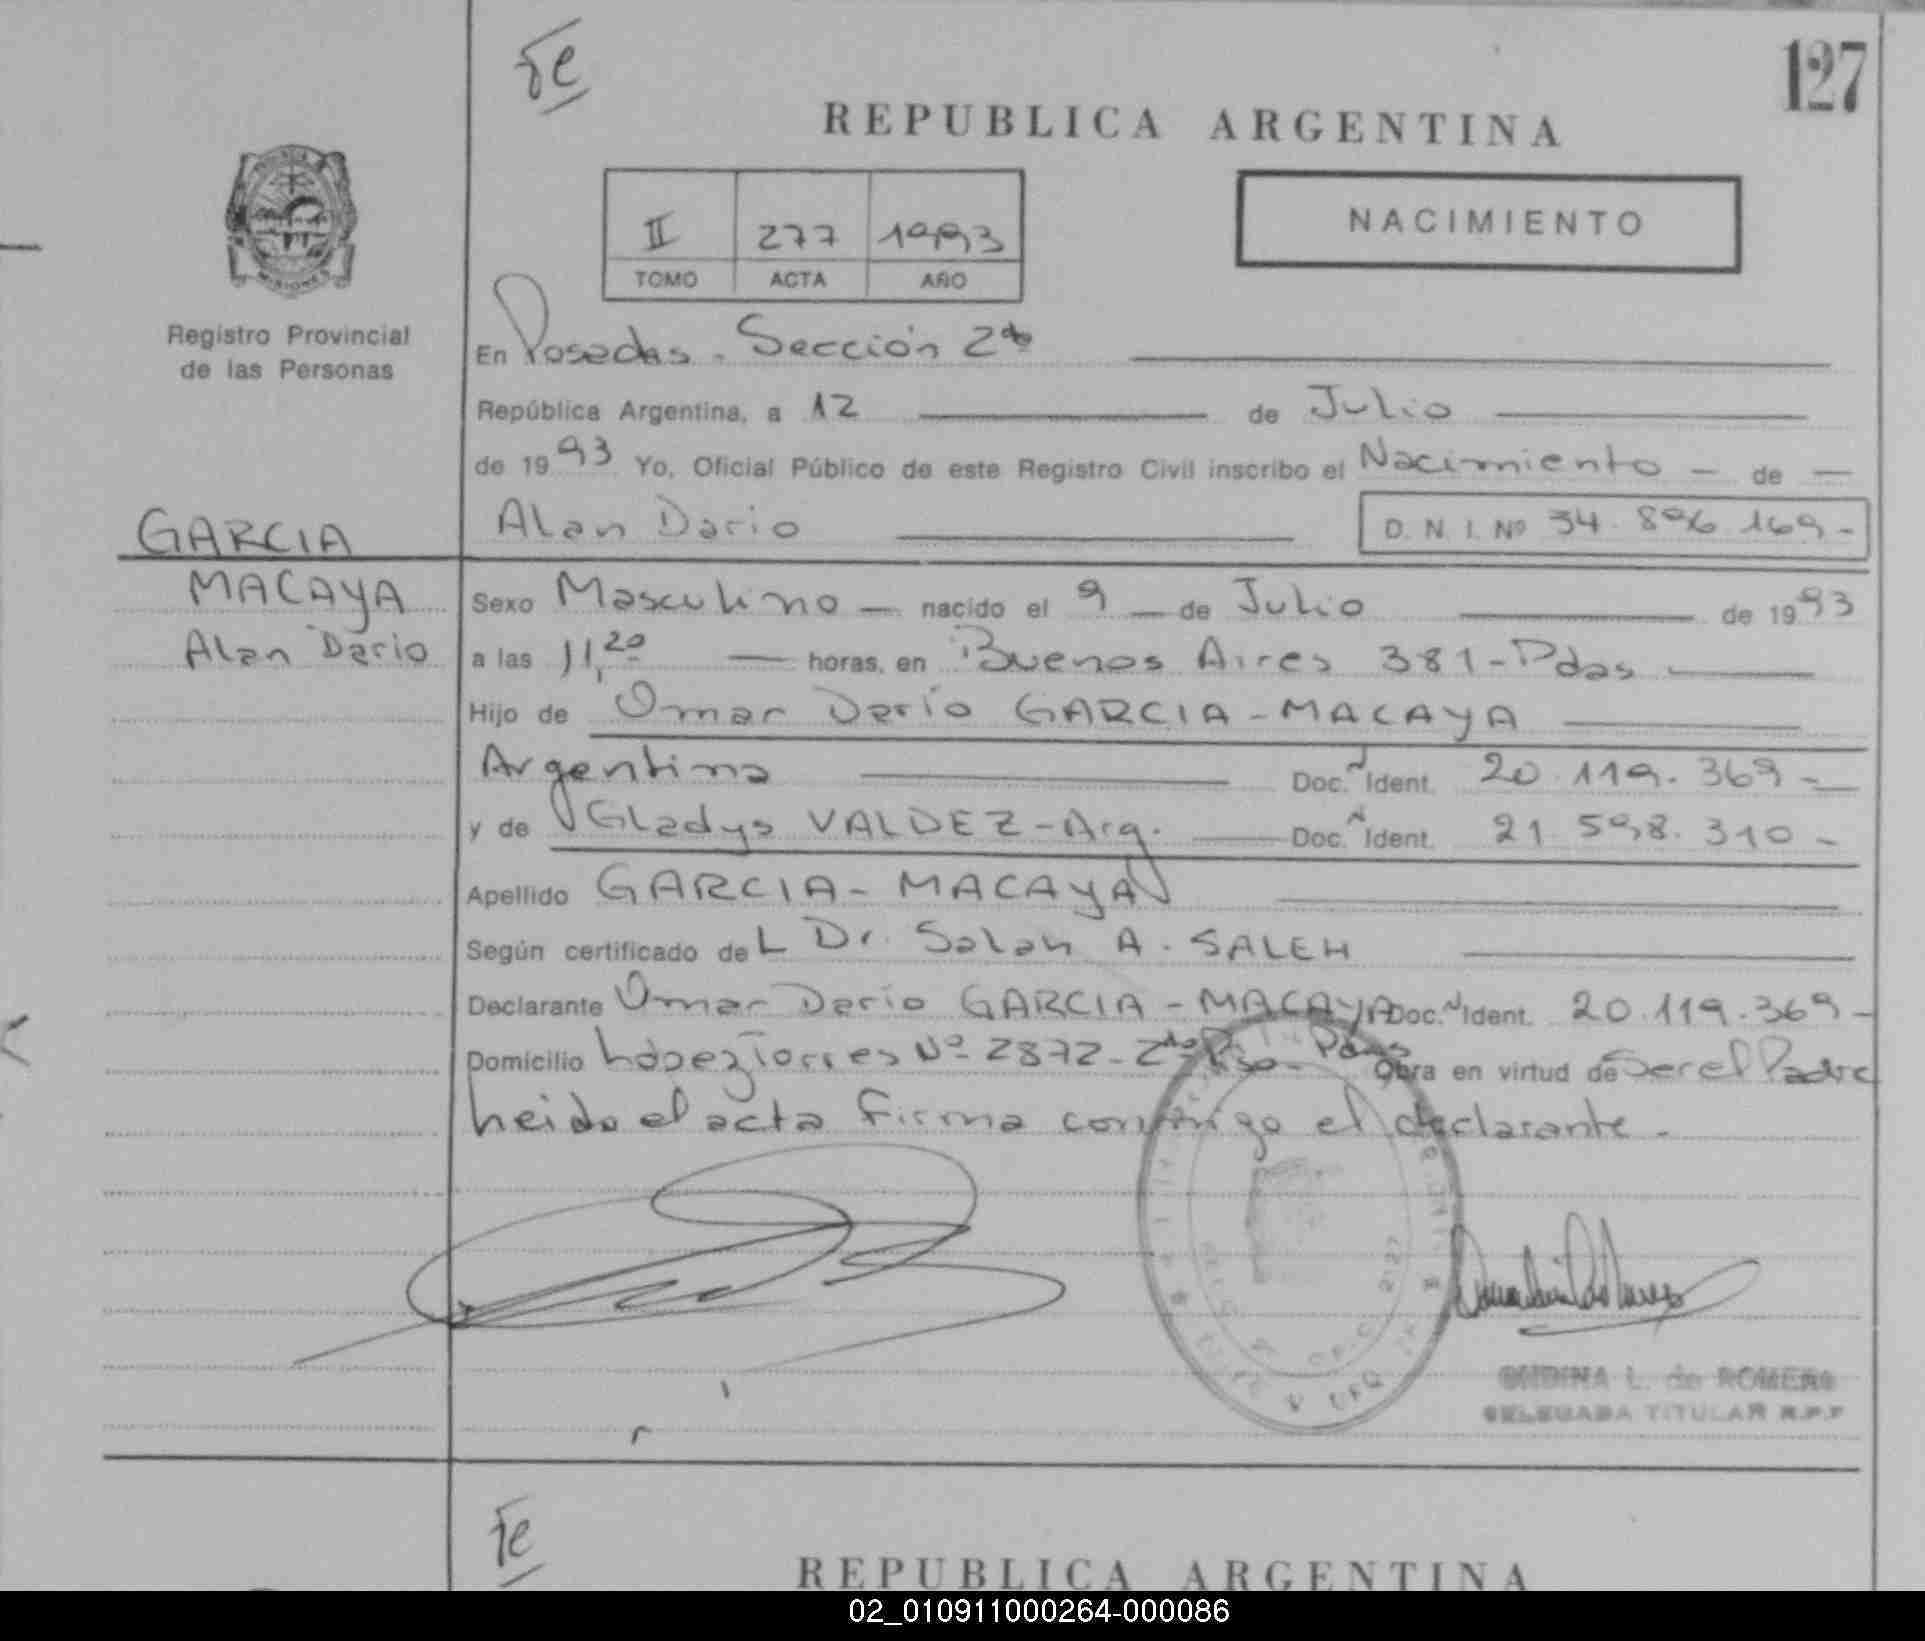 Fe
127
REPUBLICA ARGENTINA
II 277 1993
TOMO ACTA AÑO
NACIMIENTO
MISIONES
Registro Provincial
de las Personas
En Posadas - Sección 2da
República Argentina, a 12 de Julio
de 1993 Yo, Oficial Público de este Registro Civil inscribo el Nacimiento - de -
GARCIA
Alan Dario D. N. I. Nº 34.896.169-
MACAYA
Sexo Masculino - nacido el 9 - de Julio de 1993
Alan Dario
a las 11,20 horas, en Buenos Aires 381-Pdas
Hijo de Omar Darío GARCIA-MACAYA
Argentina Doc. Ident. 20.119.369-
y de Gladys VALDEZ-Arg. Doc. Ident. 21.598.310-
Apellido GARCIA-MACAYA
Según certificado del Dr. Salah A. SALEH
Declarante Omar Dario GARCIA-MACAYA Doc. Ident. 20.119.369-
Domicilio López Torres Nº 2872-2do Piso- Pdas Obra en virtud de Ser el Padre
Leida el acta firma conmigo el declarante.
ONDINA L. de ROMERO
DELEGADA TITULAR R.P.P
Fe
REPUBLICA ARGENTINA
02_010911000264-000086